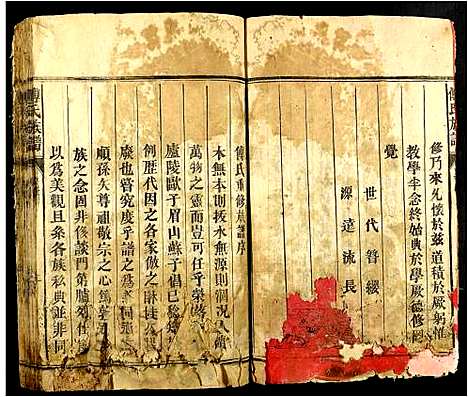 傅氏族譜
修乃來允懷於茲道積於厥躬惟
教學半念終始典於學厥德修罔
覺
世代簪纓
源遠流長
傅氏重修族譜序
木無本則拔水無源則涸况人領
萬物之靈而豈可任乎
廬陵歐于眉山蘇于倡已
例歷代因之各家倣之
廢也嘗究度乎譜之為
順孫矢尊祖敬宗之心
族之念固非修談門第臚列
以為美觀且夫各族私典並非同
傅氏族譜